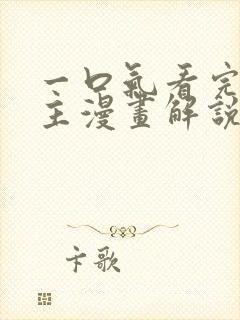 一口氣看完
主漫畫解說
卡歌